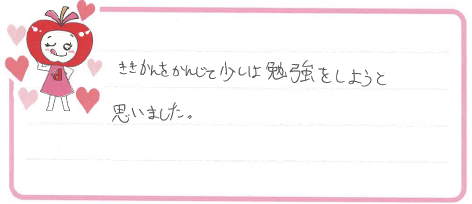 ききかんをかんじて少しは勉強をしようと
思いました。